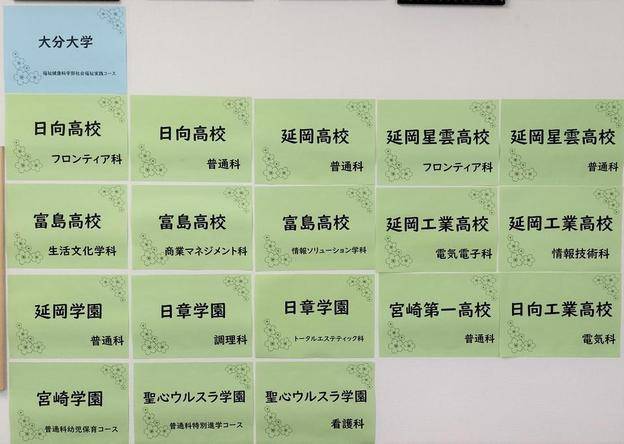 大分大学
福祉健康科学部社会福祉実践コース
日向高校
フロンティア科
日向高校
普通科
延岡高校
普通科
延岡星雲高校
フロンティア科
延岡星雲高校
普通科
富島高校
生活文化学科
富島高校
商業マネジメント科
富島高校
情報ソリューション学科
延岡工業高校
電気電子科
延岡工業高校
情報技術科
延岡学園
普通科
日章学園
調理科
日章学園
トータルエステティック科
宮崎第一高校
普通科
日向工業高校
電気科
宮崎学園
普通科幼児保育コース
聖心ウルスラ学園
普通科特別進学コース
聖心ウルスラ学園
看護科